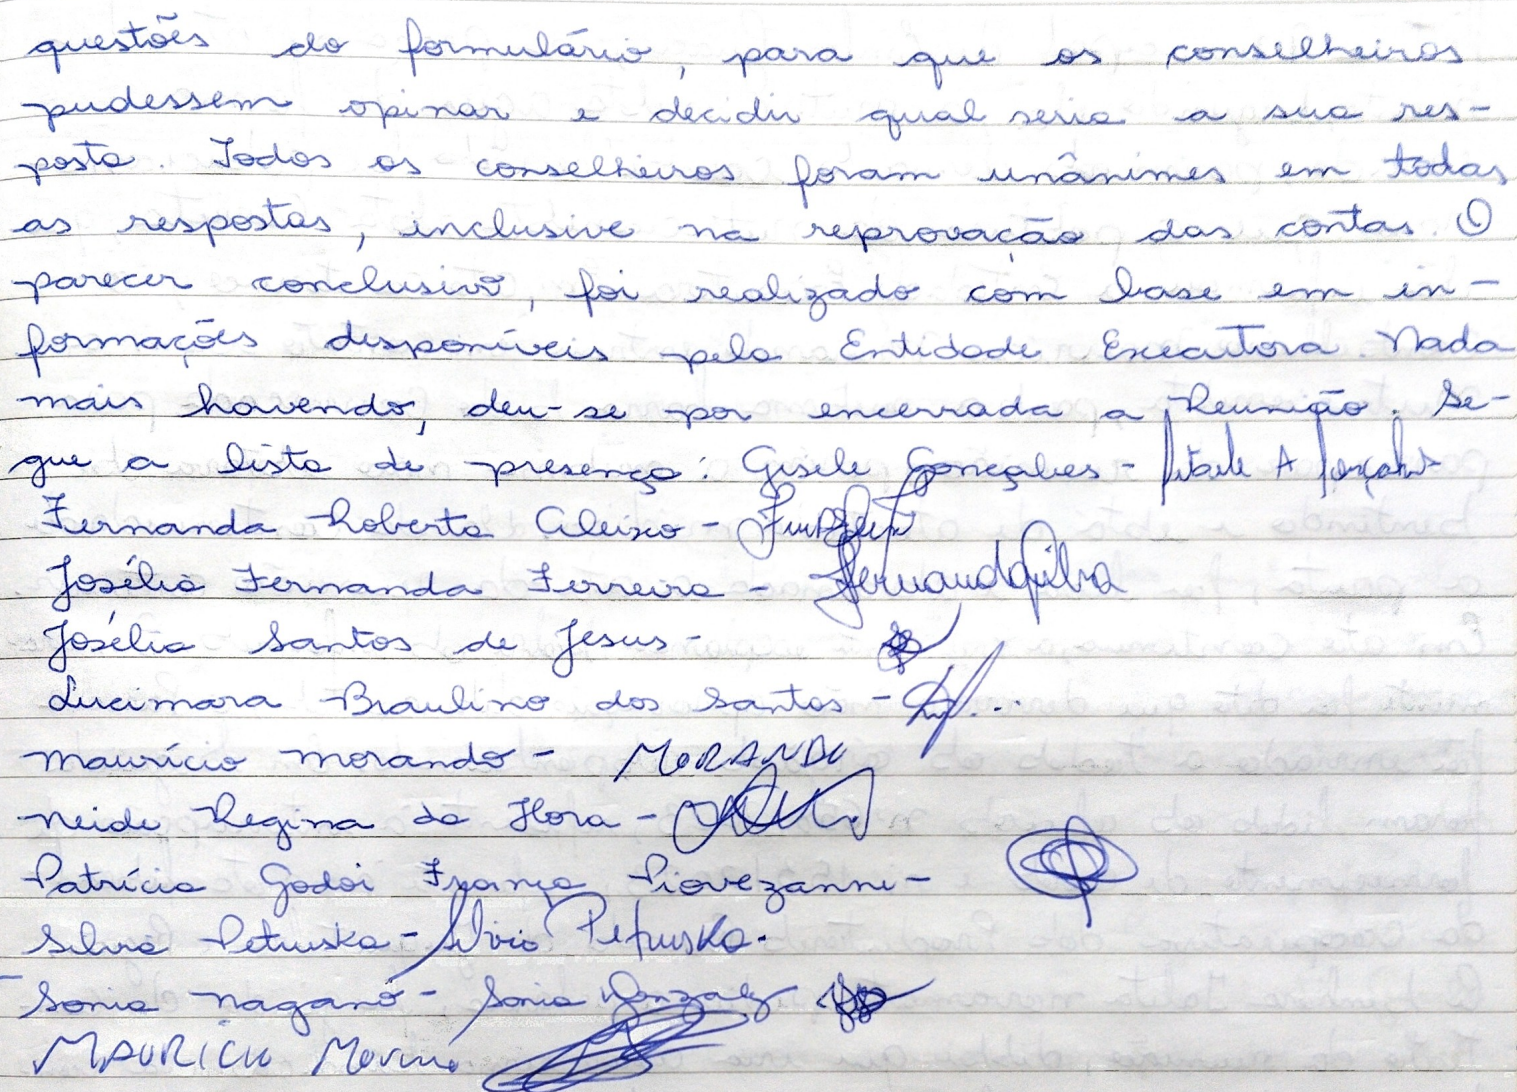 questões do formulário, para que os conselheiros
pudessem opinar e decidir qual seria a sua res-
posta. Todos os conselheiros foram unânimes em todas
as respostas, inclusive na reprovação das contas. O
parecer conclusivo, foi realizado com base em in-
formações disponíveis pela Entidade Executora. Nada
mais havendo, deu-se por encerrada a Reunião. Se-
gue a lista de presença: Gisele Gonçalves - A Gonçalves
Fernanda Roberta Aleixo -
Josélia Fernanda Ferreira -
Josélia Santos de Jesus -
Lucimara Braulino dos Santos -
Maurício Morando - MORANDO
Neide Regina da Hora -
Patrícia Godoi França Piovezanni -
Silvia Petruska - Silvia Petruska.
Sonia Nagano - Sonia
MAURICIO